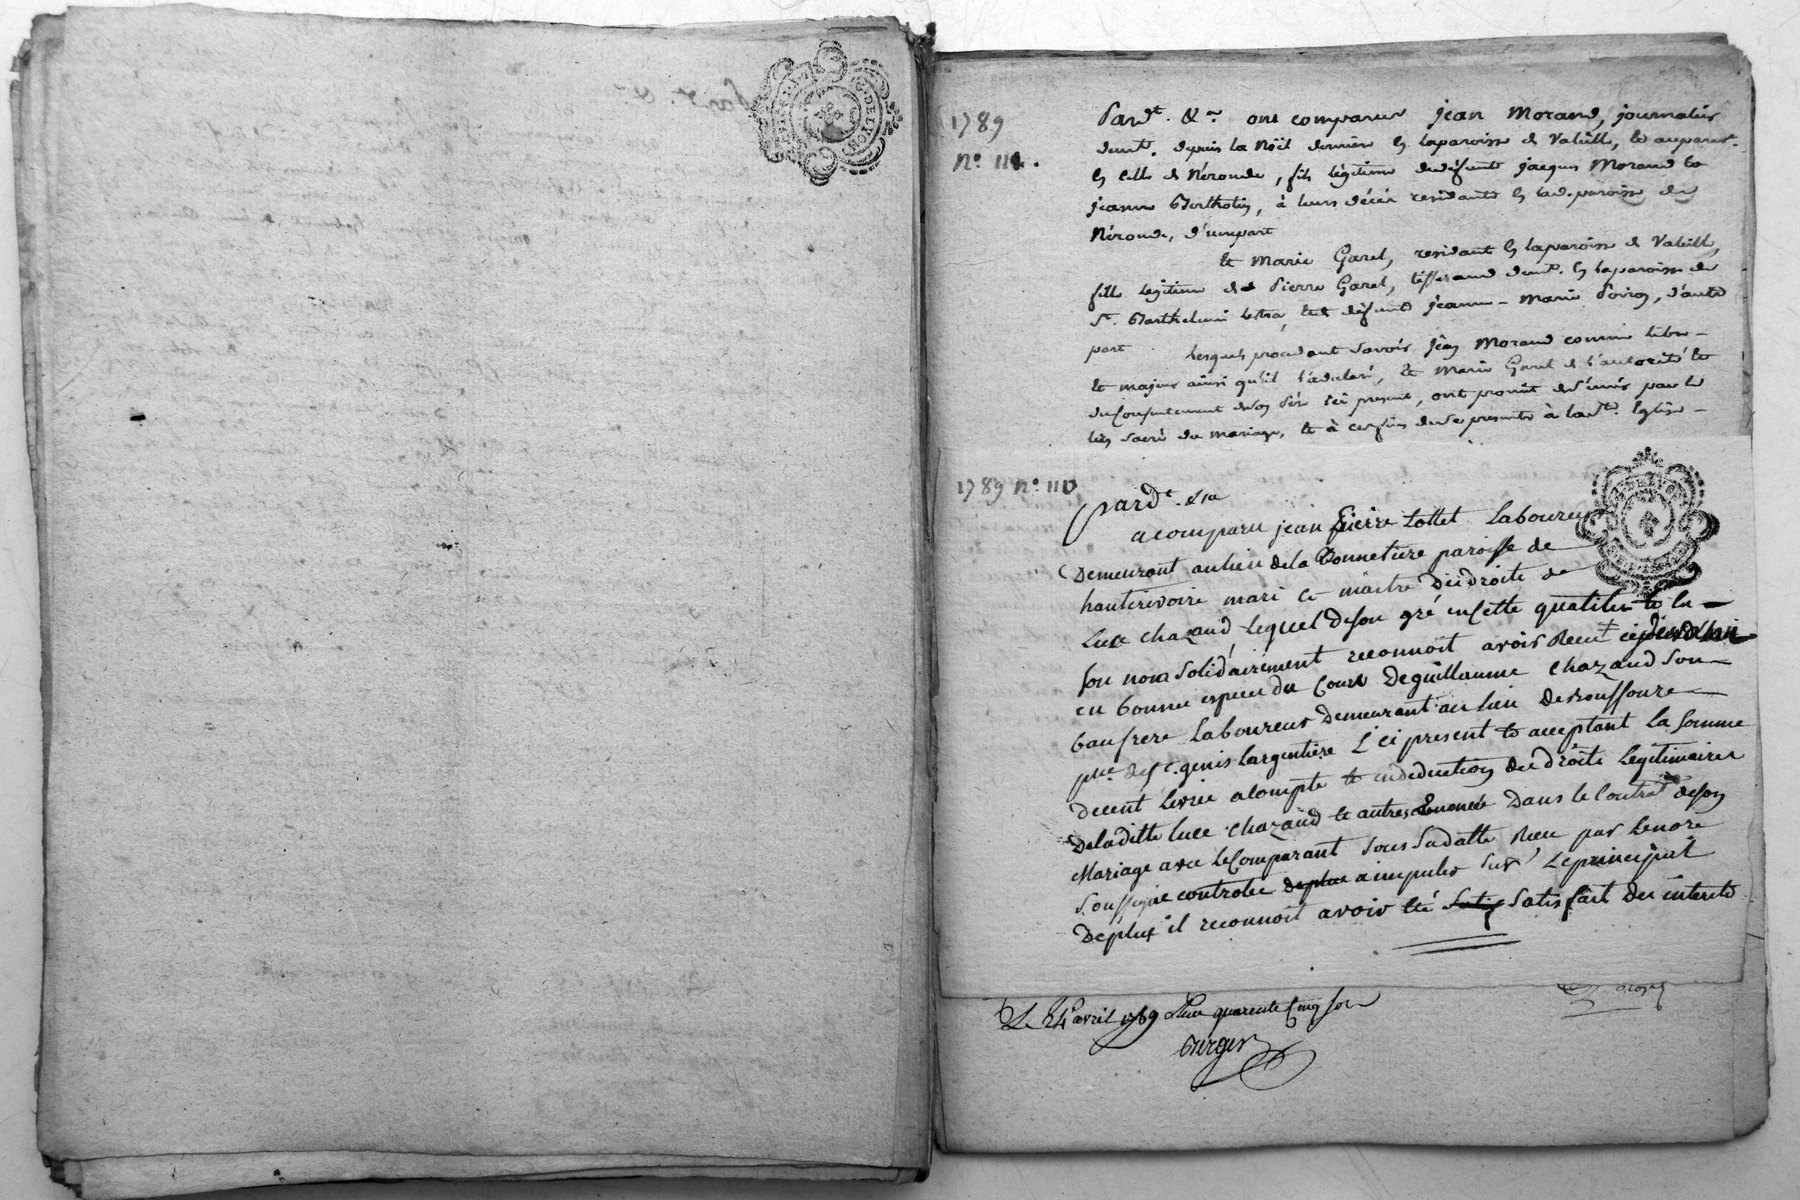 1789
N.° 111.
Pard.t &.a ont comparus jean Morand, journalier
demt. depuis la Noël derniere en la paroisse de Valeille, et auparavt.
en celle de Néronde, fils légitime de défunt jacques Morand et
jeanne Bertholin, à leurs décès residants en lad. paroisse de
Néronde, d'une part
Et Marie Garel, residant en la paroisse de Valeille,
fille légitime de Pierre Garel, tisserand demt. en la paroisse de
St. Barthelemi Lestra, et de défunte jeanne-Marie Poiron, d'autre
part
Lesquels procedant savoir, jean Morand comme libre
et majeur ainsi qu'il l'a declaré, et Marie Garel de l'autorité et
du consentement de son père ici present, ont promit de s'unir par le
lien sacré du mariage, et à ces fins de se presenter à la ste. Eglise
1789 n.° 110
pard.t &a
a comparu jean pierre tollet Laboureur
Demeurant au lieu de la Bonnetiere paroisse de
hauterivoire mari et maitre des droits de
Luce chazaud, Lequel de son gré en cette qualité et en
son nom solidairement reconnoit avoir Reçu
en bonne espece du Cours De guillaume chazaud son
beaufrere Laboureur Demeurant au lieu de
psse. de st. genis Largentiere Ici present et acceptant La somme
de cent Livres acompte et en deduction des droits Legitimaires
De laditte Luce chazaud et autres Enoncés Dans le Contrat de son
Mariage avec le Comparant sous sa datte Reçu par le nore
soussigné controlée a imputer sur Le principal
De plus il reconnoit avoir été satisfait des interets
Le 24 avril 1789 Reçu quarente Cinq sols
Berger